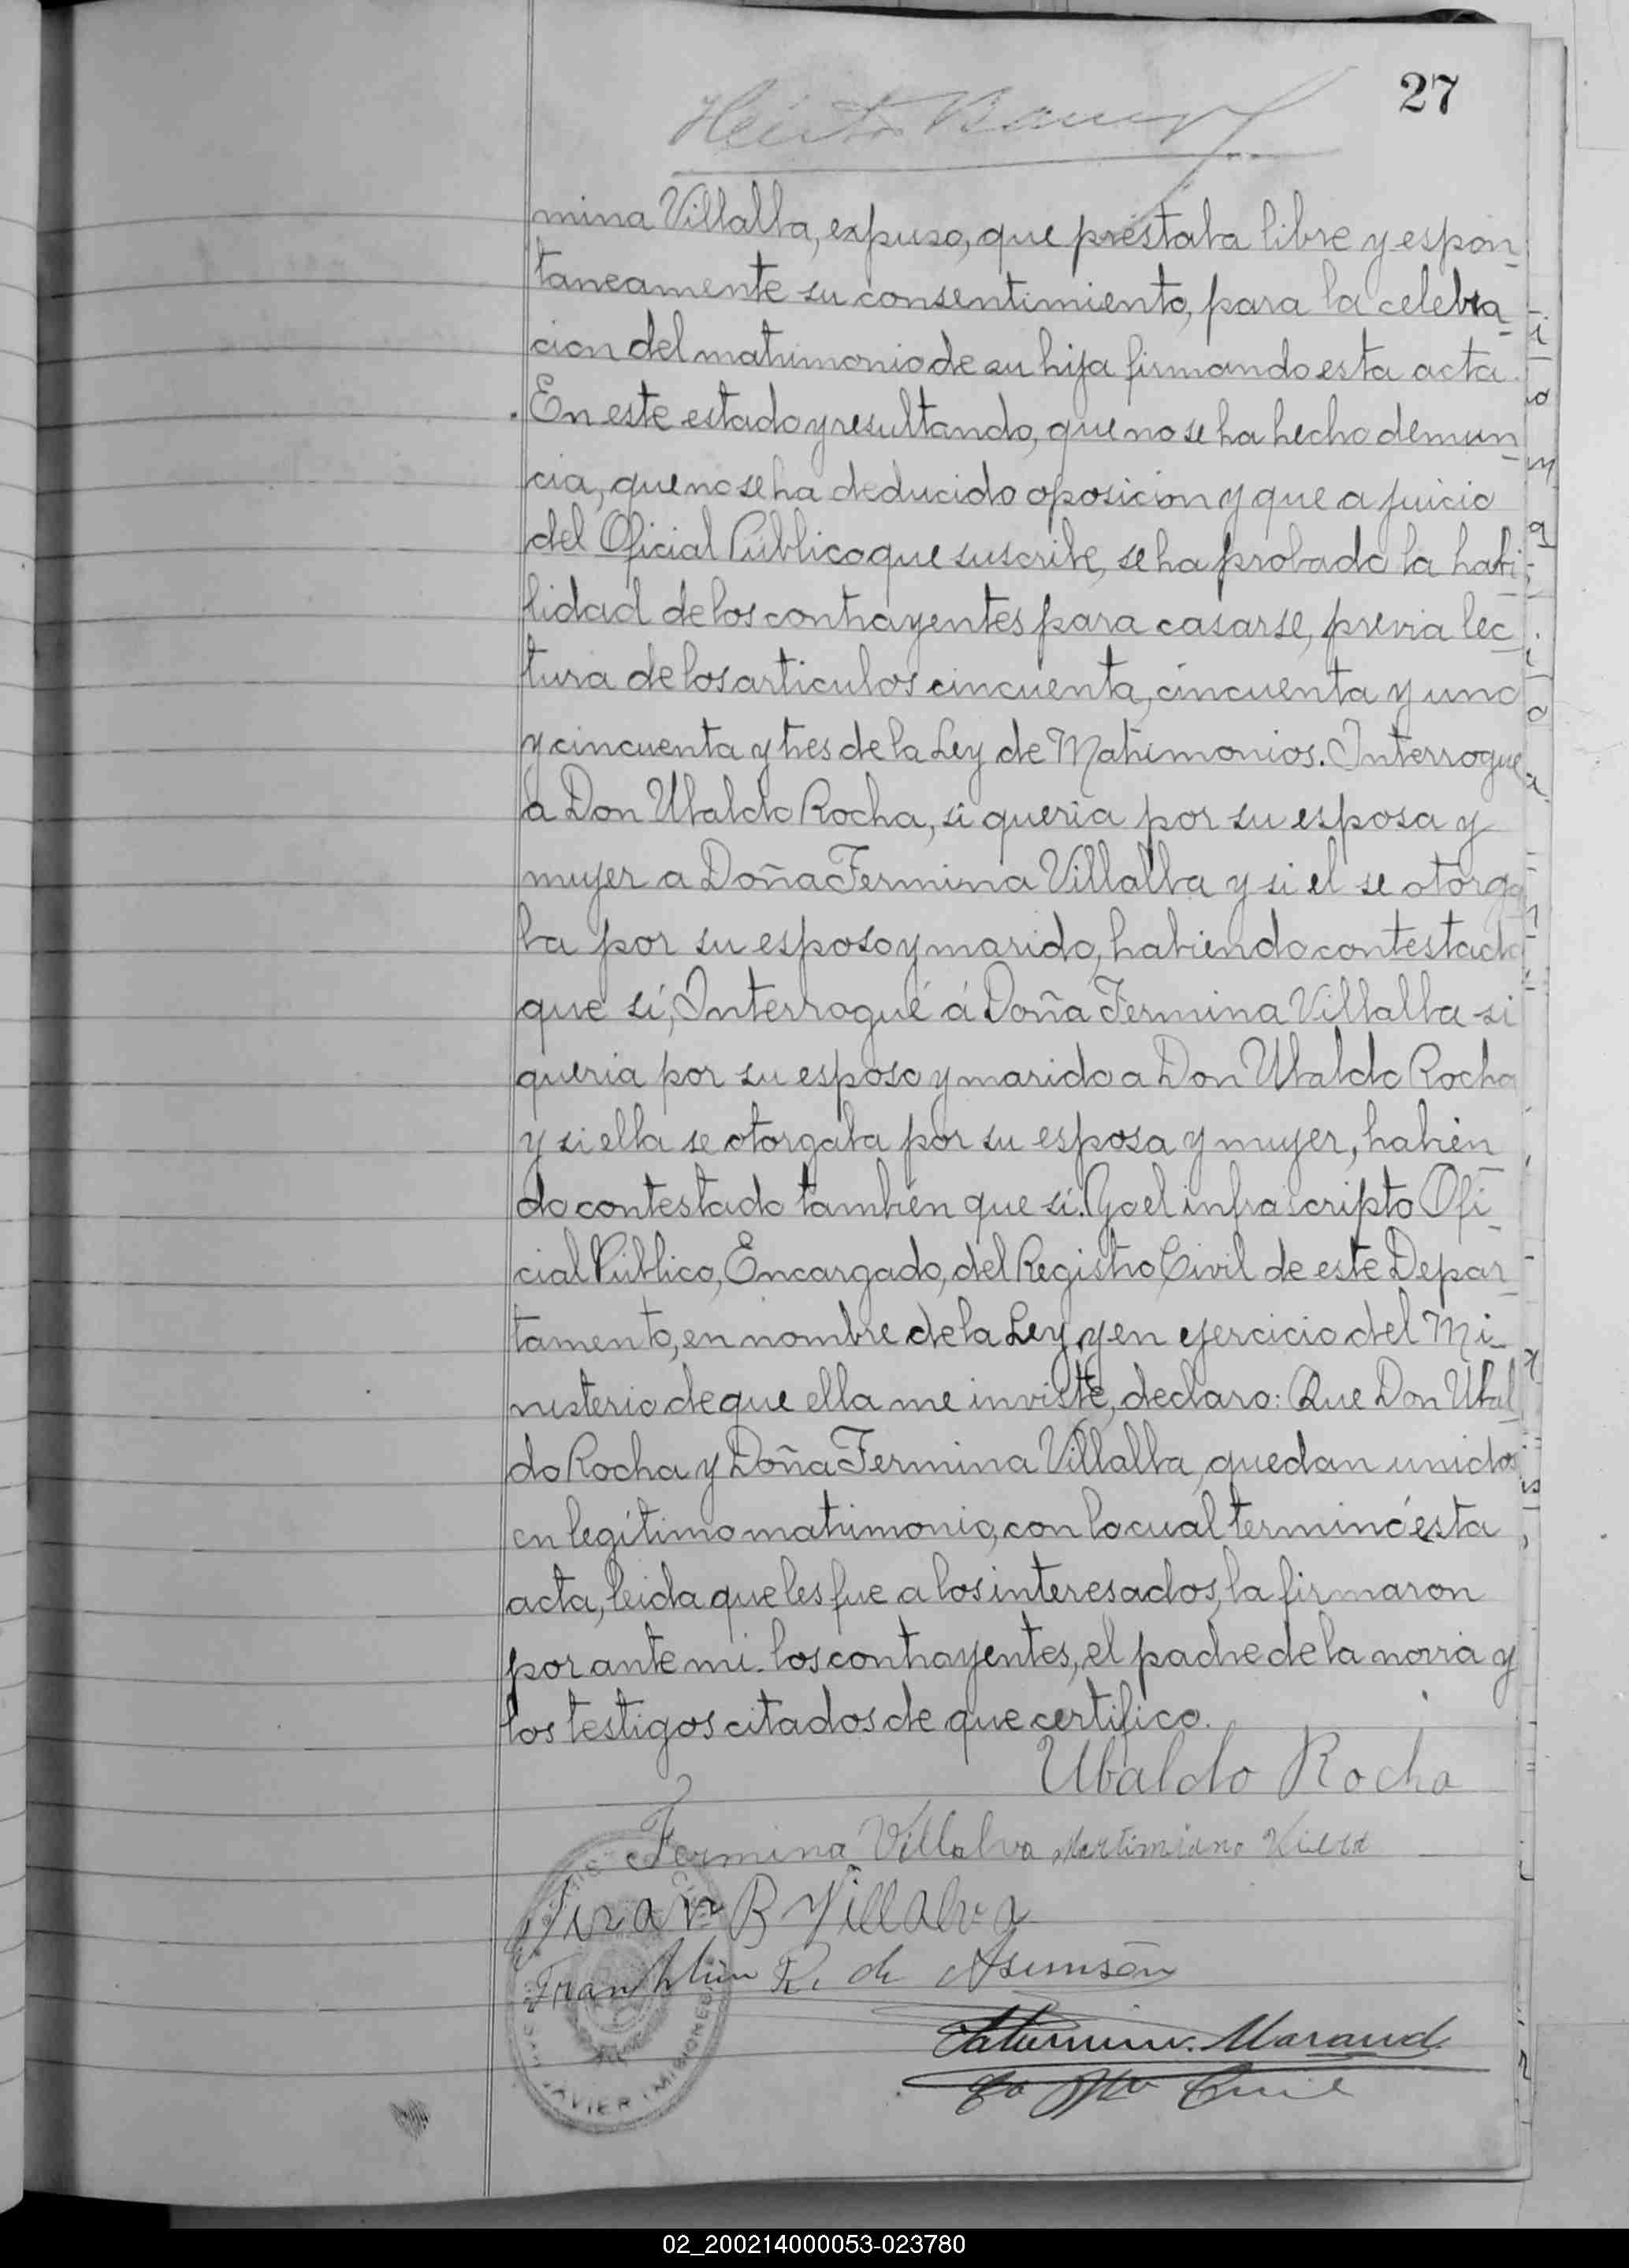 27
mina Villalba, expuso, que prestaba libre y espon
taneamente su consentimiento, para la celebra
cion del matrimonio de su hija firmando esta acta.
En este estado y resultando, que no se ha hecho denun
cia, que no se ha deducido oposicion y que a juicio
del Oficial Público que suscribe, se ha probado la habi
lidad de los contrayentes para casarse, previa lec
tura de los articulos cincuenta, cincuenta y uno
y cincuenta y tres de la Ley de Matrimonios. Interrogue
a Don Ubaldo Rocha, si queria por su esposa y
mujer a Doña Fermina Villalba y si el se otorga
ba por su esposo y marido, habiendo contestado
que sí, Interrogué á Doña Fermina Villalba si
queria por su esposo y marido a Don Ubaldo Rocha
y si ella se otorgaba por su esposa y mujer, habien
do contestado tambien que sí. Yo el infrascripto Ofi
cial Público, Encargado, del Registro Civil de este Depar
tamento, en nombre de la Ley, y en ejercicio del Mi
nisterio de que ella me inviste, declaro: Que Don Ubal
do Rocha y Doña Fermina Villalba, quedan unidos
en legítimo matrimonio, con lo cual terminó ésta
acta, leida que les fue a los interesados, la firmaron
por ante mi. los contrayentes, el padre de la novia y
los testigos citados de que certifico.
Ubaldo Rocha
Fermina Villalva
B Villalva
Franklin R. de Asumsön
JAVIER (MISIONES)
02_200214000053-023780